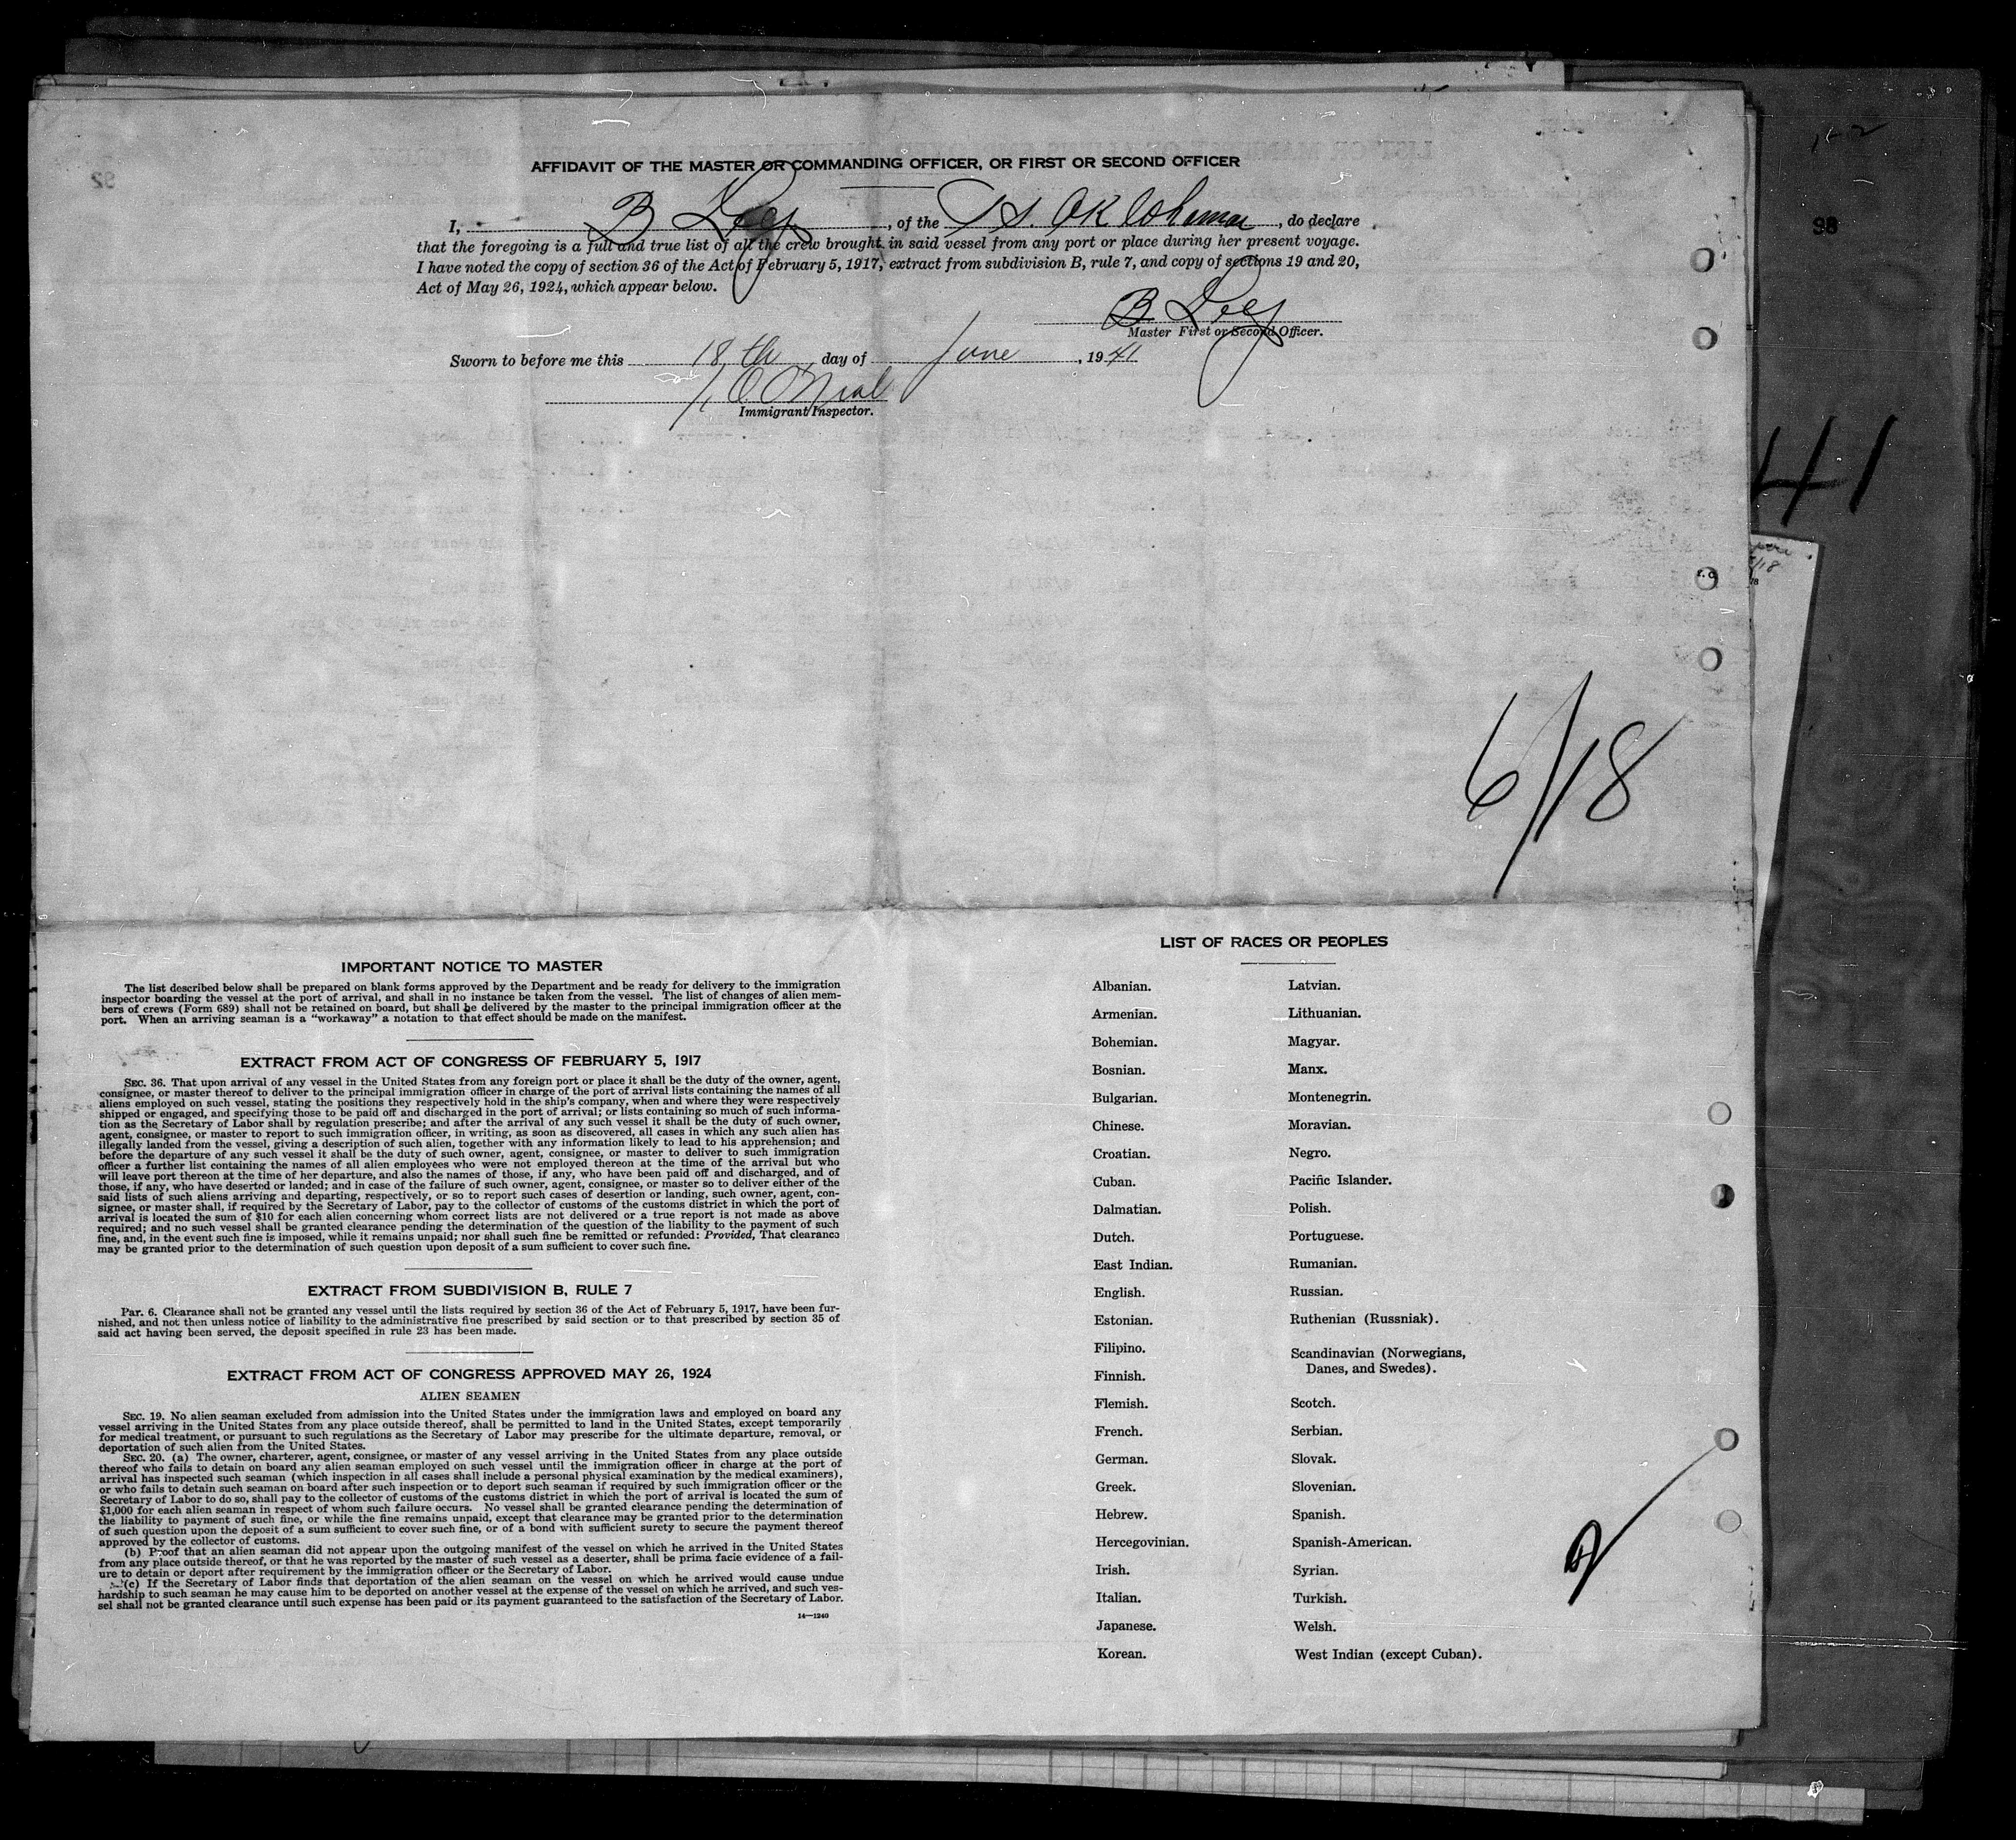 AFFIDAVIT OF THE MASTER OR COMMANDING OFFICER, OR FIRST OR SECOND OFFICER
I, B , of the Oklahoma, do declare
that the foregoing is a full and true list of all the crew brought in said vessel from any port or place during her present voyage.
I have noted the copy of section 36 of the Act of February 5, 1917, extract from subdivision B, rule 7, and copy of sections 19 and 20,
Act of May 26, 1924, which appear below.
B
Master First or Second Officer.
Sworn to before me this 18th day of June, 1941
Immigrant Inspector.
98
41
6/18
IMPORTANT NOTICE TO MASTER
The list described below shall be prepared on blank forms approved by the Department and be ready for delivery to the immigration
inspector boarding the vessel at the port of arrival, and shall in no instance be taken from the vessel. The list of changes of alien mem-
bers of crews (Form 689) shall not be retained on board, but shall be delivered by the master to the principal immigration officer at the
port. When an arriving seaman is a "workaway" a notation to that effect should be made on the manifest.
EXTRACT FROM ACT OF CONGRESS OF FEBRUARY 5, 1917
SEC. 36. That upon arrival of any vessel in the United States from any foreign port or place it shall be the duty of the owner, agent,
consignee, or master thereof to deliver to the principal immigration officer in charge of the port of arrival lists containing the names of all
aliens employed on such vessel, stating the positions they respectively hold in the ship's company, when and where they were respectively
shipped or engaged, and specifying those to be paid off and discharged in the port of arrival; or lists containing so much of such informa-
tion as the Secretary of Labor shall by regulation prescribe; and after the arrival of any such vessel it shall be the duty of such owner,
agent, consignee, or master to report to such immigration officer, in writing, as soon as discovered, all cases in which any such alien has
illegally landed from the vessel, giving a description of such alien, together with any information likely to lead to his apprehension; and
before the departure of any such vessel it shall be the duty of such owner, agent, consignee, or master to deliver to such immigration
officer a further list containing the names of all alien employees who were not employed thereon at the time of the arrival but who
will leave port thereon at the time of her departure, and also the names of those, if any, who have been paid off and discharged, and of
those, if any, who have deserted or landed; and in case of the failure of such owner, agent, consignee, or master so to deliver either of the
said lists of such aliens arriving and departing, respectively, or so to report such cases of desertion or landing, such owner, agent, con-
signee, or master shall, if required by the Secretary of Labor, pay to the collector of customs of the customs district in which the port of
arrival is located the sum of $10 for each alien concerning whom correct lists are not delivered or a true report is not made as above
required; and no such vessel shall be granted clearance pending the determination of the question of the liability to the payment of such
fine, and, in the event such fine is imposed, while it remains unpaid; nor shall such fine be remitted or refunded: Provided, That clearance
may be granted prior to the determination of such question upon deposit of a sum sufficient to cover such fine.
EXTRACT FROM SUBDIVISION B, RULE 7
Par. 6. Clearance shall not be granted any vessel until the lists required by section 36 of the Act of February 5, 1917, have been fur-
nished, and not then unless notice of liability to the administrative fine prescribed by said section or to that prescribed by section 35 of
said act having been served, the deposit specified in rule 23 has been made.
EXTRACT FROM ACT OF CONGRESS APPROVED MAY 26, 1924
ALIEN SEAMEN
SEC. 19. No alien seaman excluded from admission into the United States under the immigration laws and employed on board any
vessel arriving in the United States from any place outside thereof, shall be permitted to land in the United States, except temporarily
for medical treatment, or pursuant to such regulations as the Secretary of Labor may prescribe for the ultimate departure, removal, or
deportation of such alien from the United States.
SEC. 20. (a) The owner, charterer, agent, consignee, or master of any vessel arriving in the United States from any place outside
thereof who fails to detain on board any alien seaman employed on such vessel until the immigration officer in charge at the port of
arrival has inspected such seaman (which inspection in all cases shall include a personal physical examination by the medical examiners),
or who fails to detain such seaman on board after such inspection or to deport such seaman if required by such immigration officer or the
Secretary of Labor to do so, shall pay to the collector of customs of the customs district in which the port of arrival is located the sum of
$1,000 for each alien seaman in respect of whom such failure occurs. No vessel shall be granted clearance pending the determination of
the liability to payment of such fine, or while the fine remains unpaid, except that clearance may be granted prior to the determination
of such question upon the deposit of a sum sufficient to cover such fine, or of a bond with sufficient surety to secure the payment thereof
approved by the collector of customs.
(b) Proof that an alien seaman did not appear upon the outgoing manifest of the vessel on which he arrived in the United States
from any place outside thereof, or that he was reported by the master of such vessel as a deserter, shall be prima facie evidence of a fail-
ure to detain or deport after requirement by the immigration officer or the Secretary of Labor.
(c) If the Secretary of Labor finds that deportation of the alien seaman on the vessel on which he arrived would cause undue
hardship to such seaman he may cause him to be deported on another vessel at the expense of the vessel on which he arrived, and such ves-
sel shall not be granted clearance until such expense has been paid or its payment guaranteed to the satisfaction of the Secretary of Labor.
14—1240
LIST OF RACES OR PEOPLES
Albanian.
Armenian.
Bohemian.
Bosnian.
Bulgarian.
Chinese.
Croatian.
Cuban.
Dalmatian.
Dutch.
East Indian.
English.
Estonian.
Filipino.
Finnish.
Flemish.
French.
German.
Greek.
Hebrew.
Hercegovinian.
Irish.
Italian.
Japanese.
Korean.
Latvian.
Lithuanian.
Magyar.
Manx.
Montenegrin.
Moravian.
Negro.
Pacific Islander.
Polish.
Portuguese.
Rumanian.
Russian.
Ruthenian (Russniak).
Scandinavian (Norwegians,
Danes, and Swedes).
Scotch.
Serbian.
Slovak.
Slovenian.
Spanish.
Spanish-American.
Syrian.
Turkish.
Welsh.
West Indian (except Cuban).